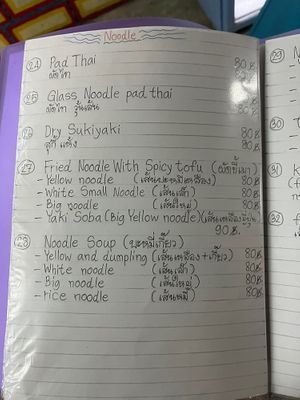 Noodle
24 Pad Thai 80฿
ผัดไท
25 Glass Noodle pad thai 80฿
ผัดไท วุ้นเส้น
26 Dry Sukiyaki 80฿
สุกี้ แห้ง
27 Fried Noodle With Spicy tofu (ผัดขี้เมา)
- Yellow noodle (เส้นบะหมี่เหลือง) 80฿
- White Small Noodle (เส้นเล็ก) 80฿
- Big noodle (เส้นใหญ่) 80฿
- Yaki Soba (Big Yellow noodle) (เส้นเหลืองญี่ปุ่น)
90฿.
28 Noodle Soup (บะหมี่เกี๊ยว)
- Yellow and dumpling (เส้นเหลือง+เกี๊ยว) 80฿
- White noodle (เส้นเล็ก) 80฿.
- Big noodle (เส้นใหญ่) 80฿.
- rice noodle (เส้นหมี่) 80฿.
29
30
31
32